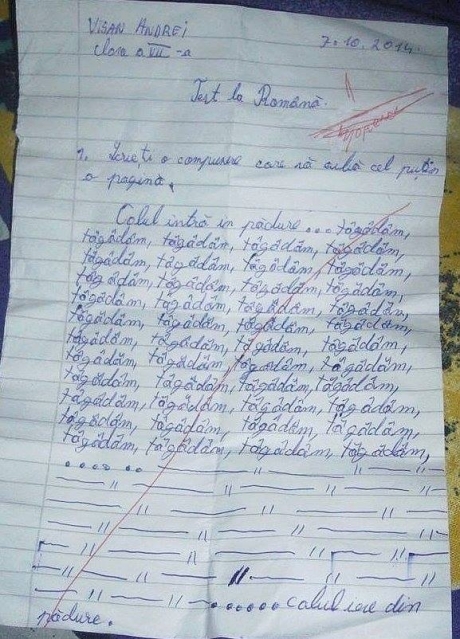 VISAN ANDREI
Clasa a VII-a
7.10.2014.
Test la Română.
1
1. Scrieți o compunere care să aibă cel puțin
o pagină.
Calul intră în pădure...tăgădăm,
tăgădăm, tăgădăm, tăgădăm, tăgădăm,
tăgădăm, tăgădăm, tăgădăm, tăgădăm,
tăgădăm, tăgădăm, tăgădăm, tăgădăm,
tăgădăm, tăgădăm, tăgădăm, tăgădăm,
tăgădăm, tăgădăm, tăgădăm, tăgădăm,
tăgădăm, tăgădăm, tăgădăm, tăgădăm,
tăgădăm, tăgădăm, tăgădăm, tăgădăm,
tăgădăm, tăgădăm, tăgădăm, tăgădăm,
tăgădăm, tăgădăm, tăgădăm, tăgădăm,
tăgădăm, tăgădăm, tăgădăm, tăgădăm,
tăgădăm, tăgădăm, tăgădăm, tăgădăm,
...... — 〃 — 〃 —
— 〃 — 〃 — 〃 — 〃 —
— 〃 — 〃 — 〃 — 〃
— 〃 — 〃 — 〃 — 〃 —
— 〃 — 〃 — 〃 — 〃 —
— 〃 — 〃 — 〃 — 〃 —
— 〃 — 〃 — ...... calul iese din
pădure.